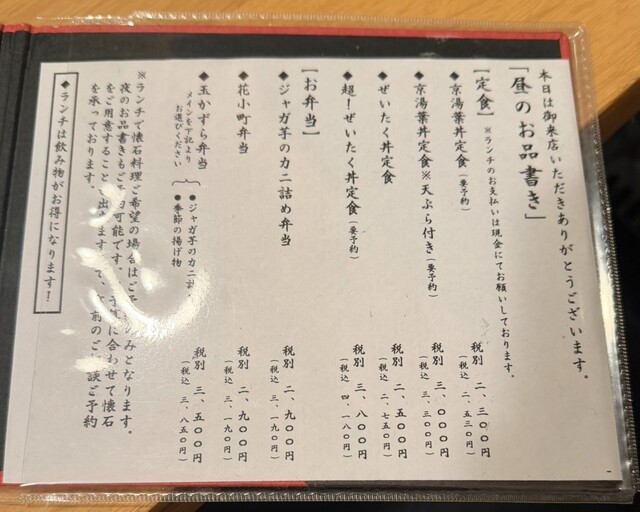 本日は御来店いただきありがとうございます。
「昼のお品書き」
【定食】※ランチのお支払いは現金にてお願いしております。
◆京湯葉丼定食(要予約) 税別 二、三〇〇円
(税込 二、五三〇円)
◆京湯葉丼定食※天ぷら付き(要予約) 税別 三、〇〇〇円
(税込 三、三〇〇円)
◆ぜいたく丼定食 税別 二、五〇〇円
(税込 二、七五〇円)
◆超!ぜいたく丼定食(要予約) 税別 三、八〇〇円
(税込 四、一八〇円)
【お弁当】
◆ジャガ芋のカニ詰め弁当 税別 二、九〇〇円
(税込 三、一九〇円)
◆花小町弁当 税別 二、九〇〇円
(税込 三、一九〇円)
◆玉かずら弁当 税別 三、五〇〇円
(税込 三、八五〇円)
メインを下記より
お選びください
●ジャガ芋のカニ詰
●季節の揚げ物
※ランチで懐石料理ご希望の場合はご予 のみとなります。
夜のお品書きもご予 可能です。 に合わせて懐石
をご用意すること 出 ます 、 前のご 談ご予約
を承っております。
◆ランチは飲み物がお得になります!